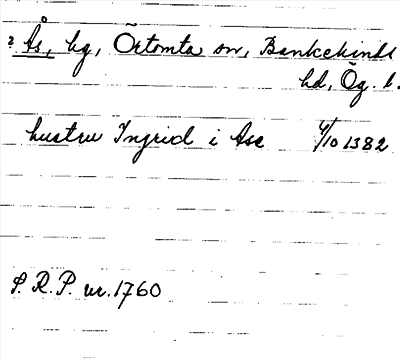 ? Ås, hg, Örtomta sn, Bankekinds
hd, Ög. l.
hustru Ingrid i Ase 6/10 1382
S. R. P. nr. 1760